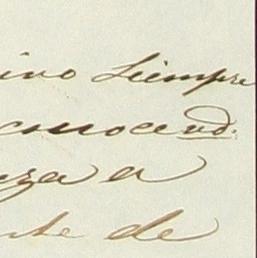 ino siempre
conoce vd.
nza a
nte de